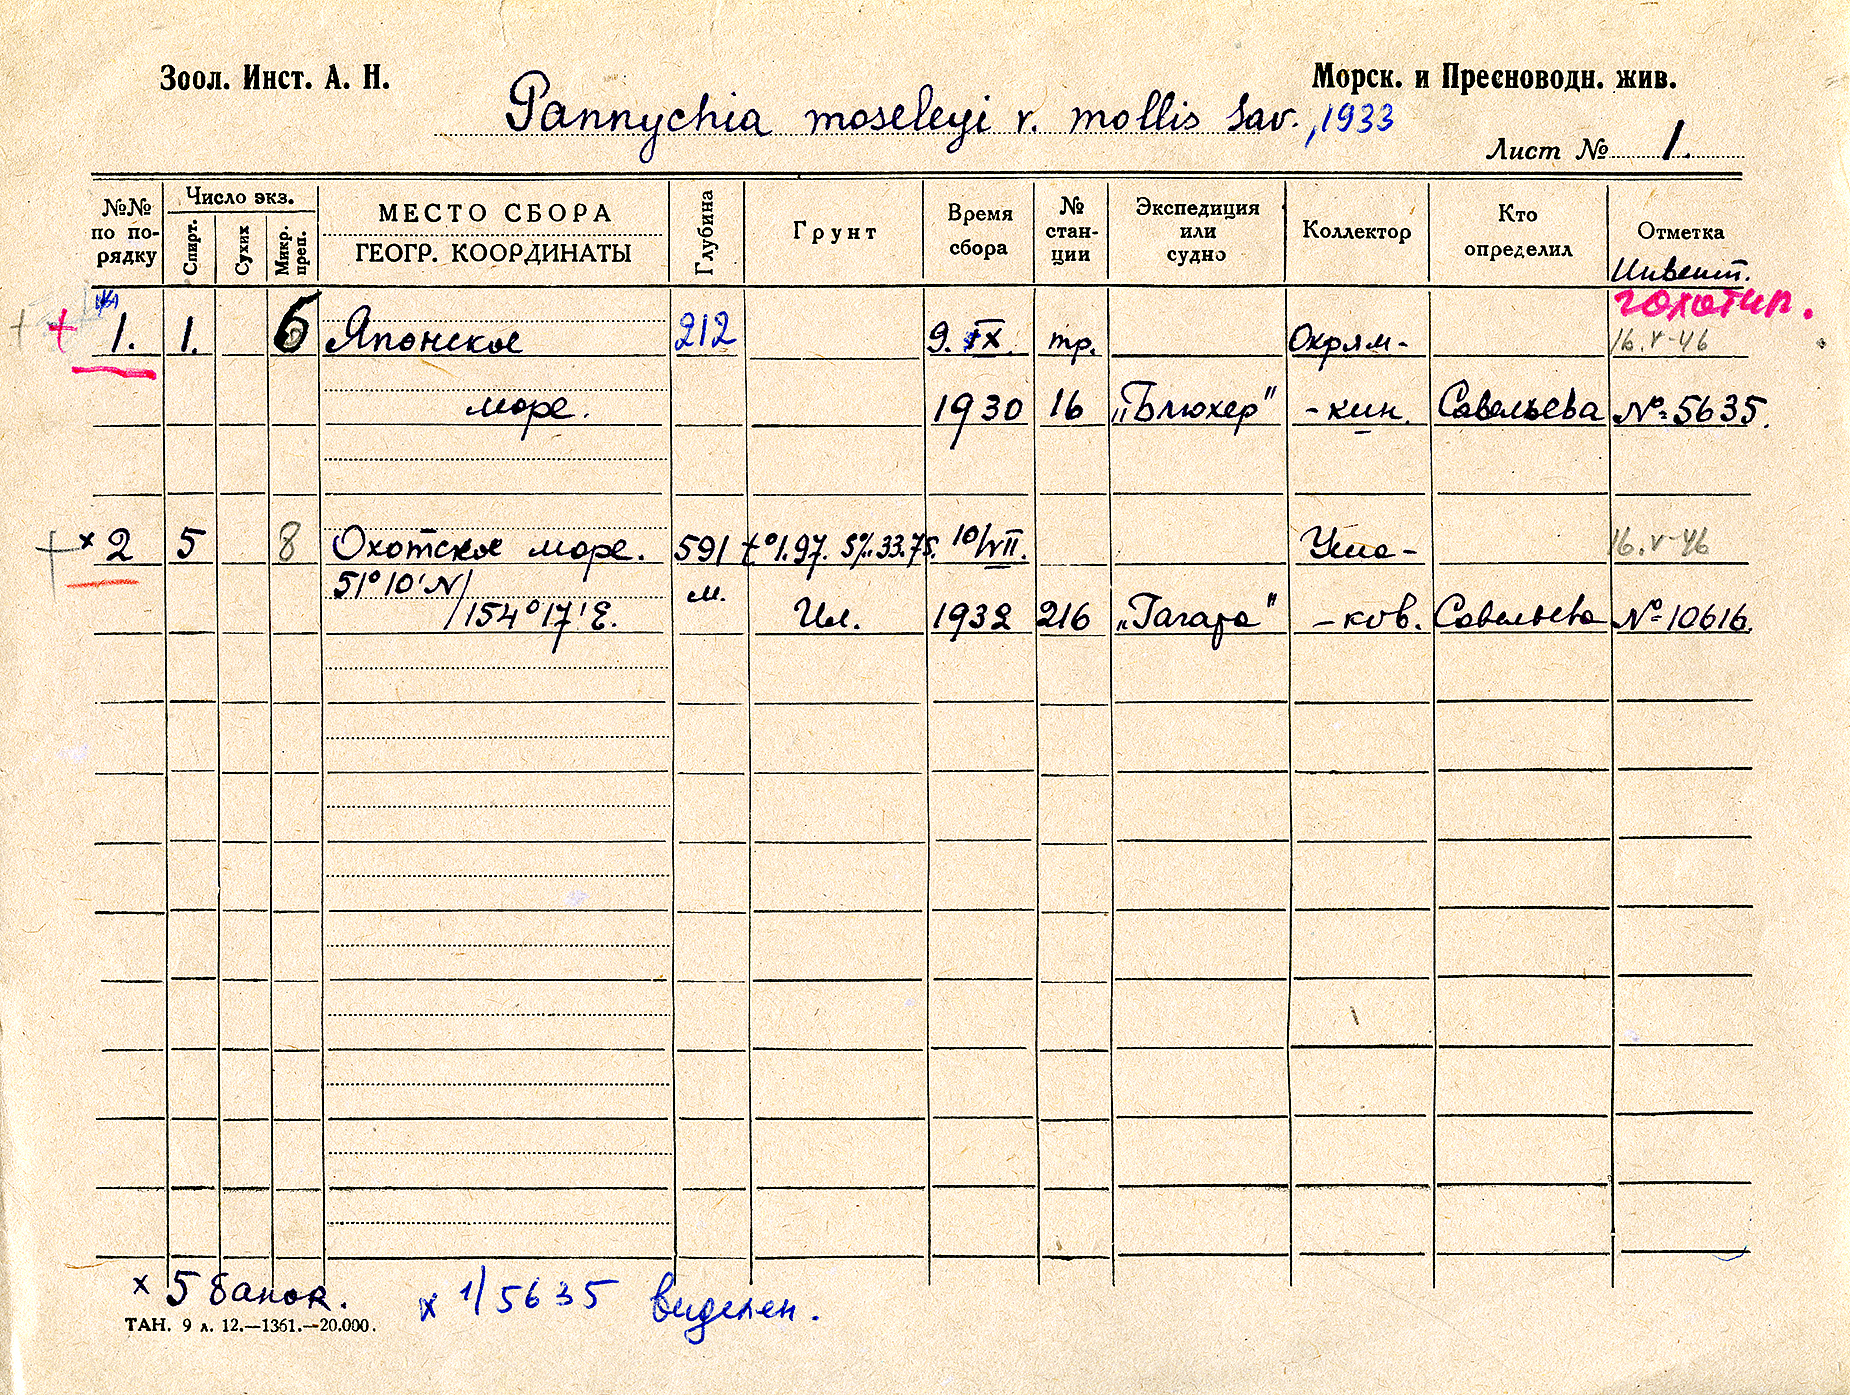 Зоол. Инст. А. Н.
Морск. и Пресноводн. жив.
Pannychia moseleyi v. mollis Sav., 1933
Лист № 1.
№№ по порядку
Число экз.
Спирт.
Сухих
Микр. преп.
МЕСТО СБОРА
ГЕОГР. КООРДИНАТЫ
Глубина
Грунт
Время сбора
№ стан-ции
Экспедиция или судно
Коллектор
Кто определил
Отметка
Инвент.
голотип.
+ + 1. 1. 6 Японское 212 9. IX. тр. Охрям- 16.V-46
море. 1930 16 „Блюхер" -кин. Савельева №5635.
+ x 2 5 8 Охотское море. 591 t°1.97. S‰33.75. 10/VII. Уша- 16.V-46
51°10'N/ м.
/154°17'E. Ил. 1932 216 „Гагара" -ков. Савельева №10616.
x 5 банок.
x 1/5635 выделен.
ТАН. 9 л. 12.—1361.—20.000.